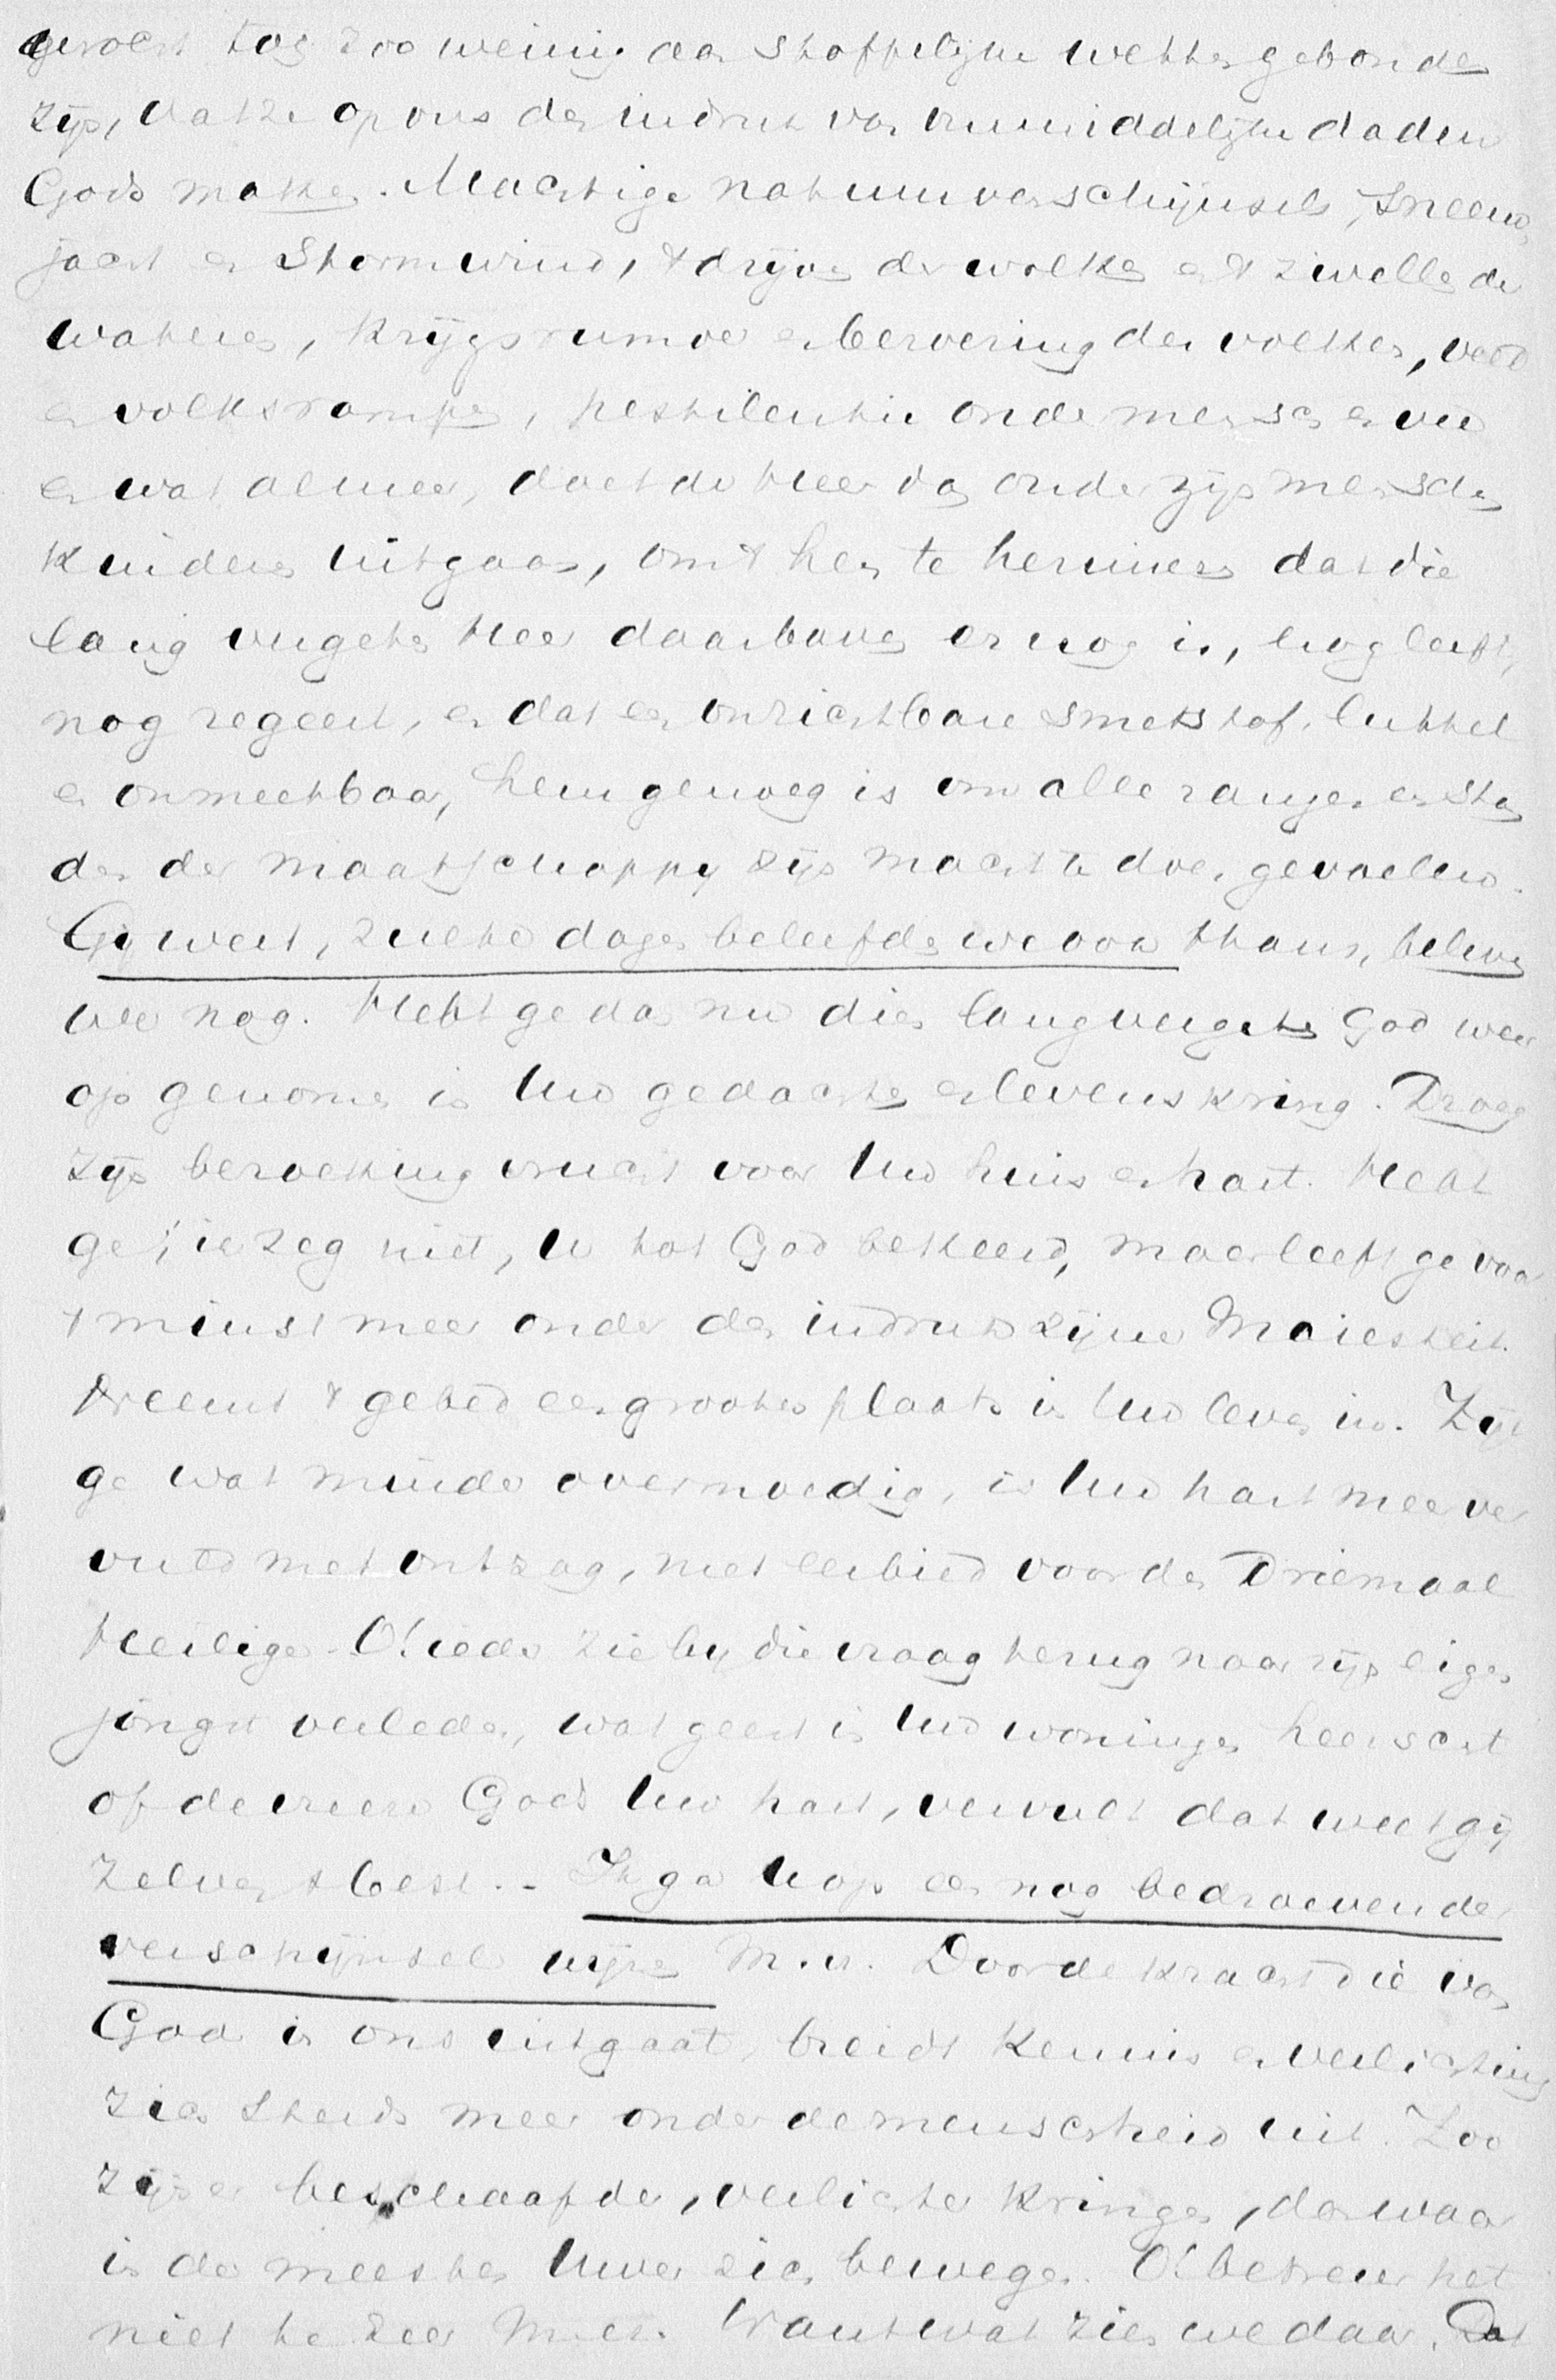 gevoel tog zoo weinig aan stoffelijke wetten gebonden
zijn, dat ze op ons den indruk van onmiddelijke daden
Gods maken. Machtige natuurverschijnsels, sneeuw
jacht en stormwind, 't drijven der wolken en 't zwellen der
wateren, krijgsrumoer en beroering der volken, veed
en volksrampen, pestilentie onder mensch en vee
en wat al meer, doet de Heer dan onder zijn menschen
kinderen uitgaan, om 't hen te herinneren dat die
lang vergeten Heer daarboven er nog is, nog leeft,
nog regeert, en dat een onzichtbare smetstof, luttel
en onmeetbaar, hem genoeg is om alle rangen en stan
den der maatschappy zijn macht te doen gevoelen.
Gij weet, zulke dagen beleefden we ook thans, beleven
we nog. Hebt ge dan nu dien langvergeten God weer
op genomen in Uw gedachten en levenskring. Droeg
zijn bezoeking vrucht voor Uw huis en hart. Hebt
ge, ik zeg niet, U tot God bekeerd, maar leeft ge voor
't minst meer onder den indruk zijner Majesteit.
Neemt 't gebed een grooter plaats in Uw leven in. Zijt
ge wat minder overmoedig, is Uw hart meer ver
vuld met ontzag, met eerbied voor den Driemaal
Heilige. O! ieder zie by die vraag terug naar zijn eigen
jongst verleden, wat geest in Uw woningen heerscht
of de vreeze Gods Uw hart, vervult dat weet gij
zelven 't best. - Ik ga U op een nog bedroevender
verschijnsel wijzen M.H. Door de kracht die van
God in ons uitgaat, breidt kennis en verlichting
zich steeds meer onder de menschheid uit. Zoo
zijn er beschaafde, verlichte kringen, daar waar
in de meesten Uwer zich bewegen. O! betreur het
niet te zeer M.H. Want wat zien we daar. Dat